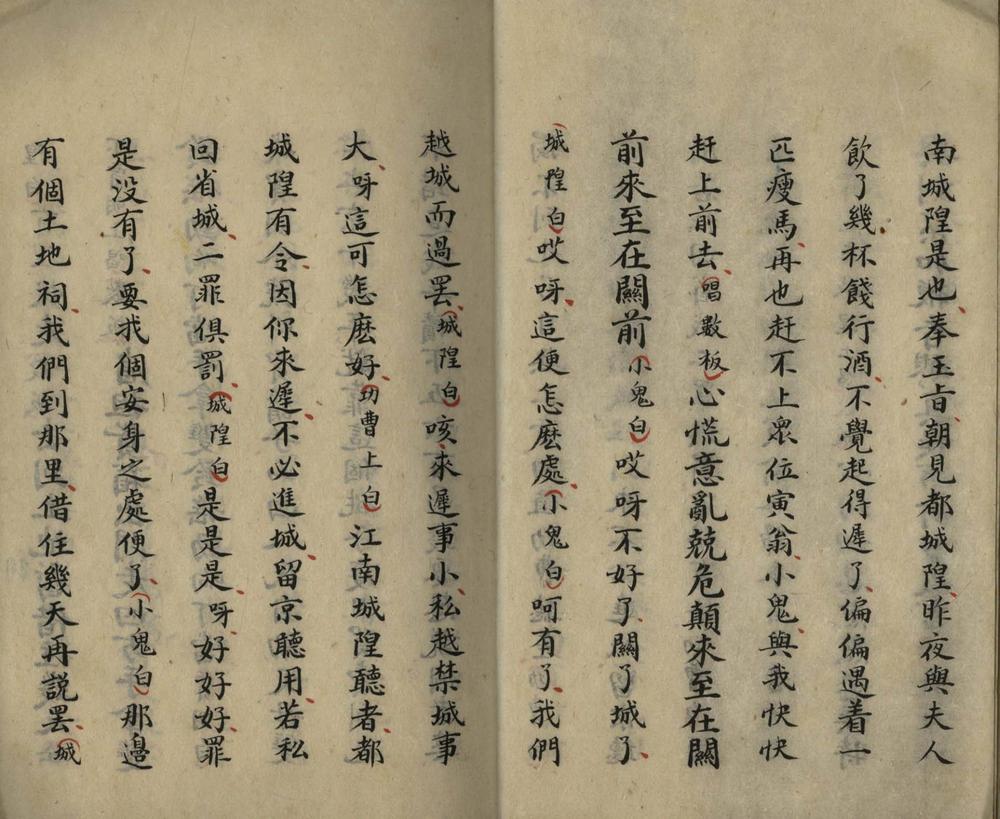 南城隍是也、奉玉旨朝見都城隍、昨夜與夫人
飲了幾杯餞行酒、不覺起得遲了、偏偏遇着一
匹瘦馬、再也赶不上衆位寅翁、小鬼、與我快快
赶上前去、(唱數板)心慌意亂兢危顛來至在關
前來至在關前(小鬼白)哎呀不好了、關了城了、
(城隍白)哎呀、這便怎麽處、(小鬼白)呵有了、我們
越城而過罷、(城隍白)咳、來遲事小、私越禁城事
大、呀這可怎麽好、(功曹上白)江南城隍聽者、都
城隍有令、因你來遲、不必進城、留京聽用、若私
回省城、二罪俱罰、(城隍白)是是是、呀、好好好、罪
是没有了、要找個安身之處便了、(小鬼白)那邉
有個土地祠、我們到那里、借住幾天再説罷、(城